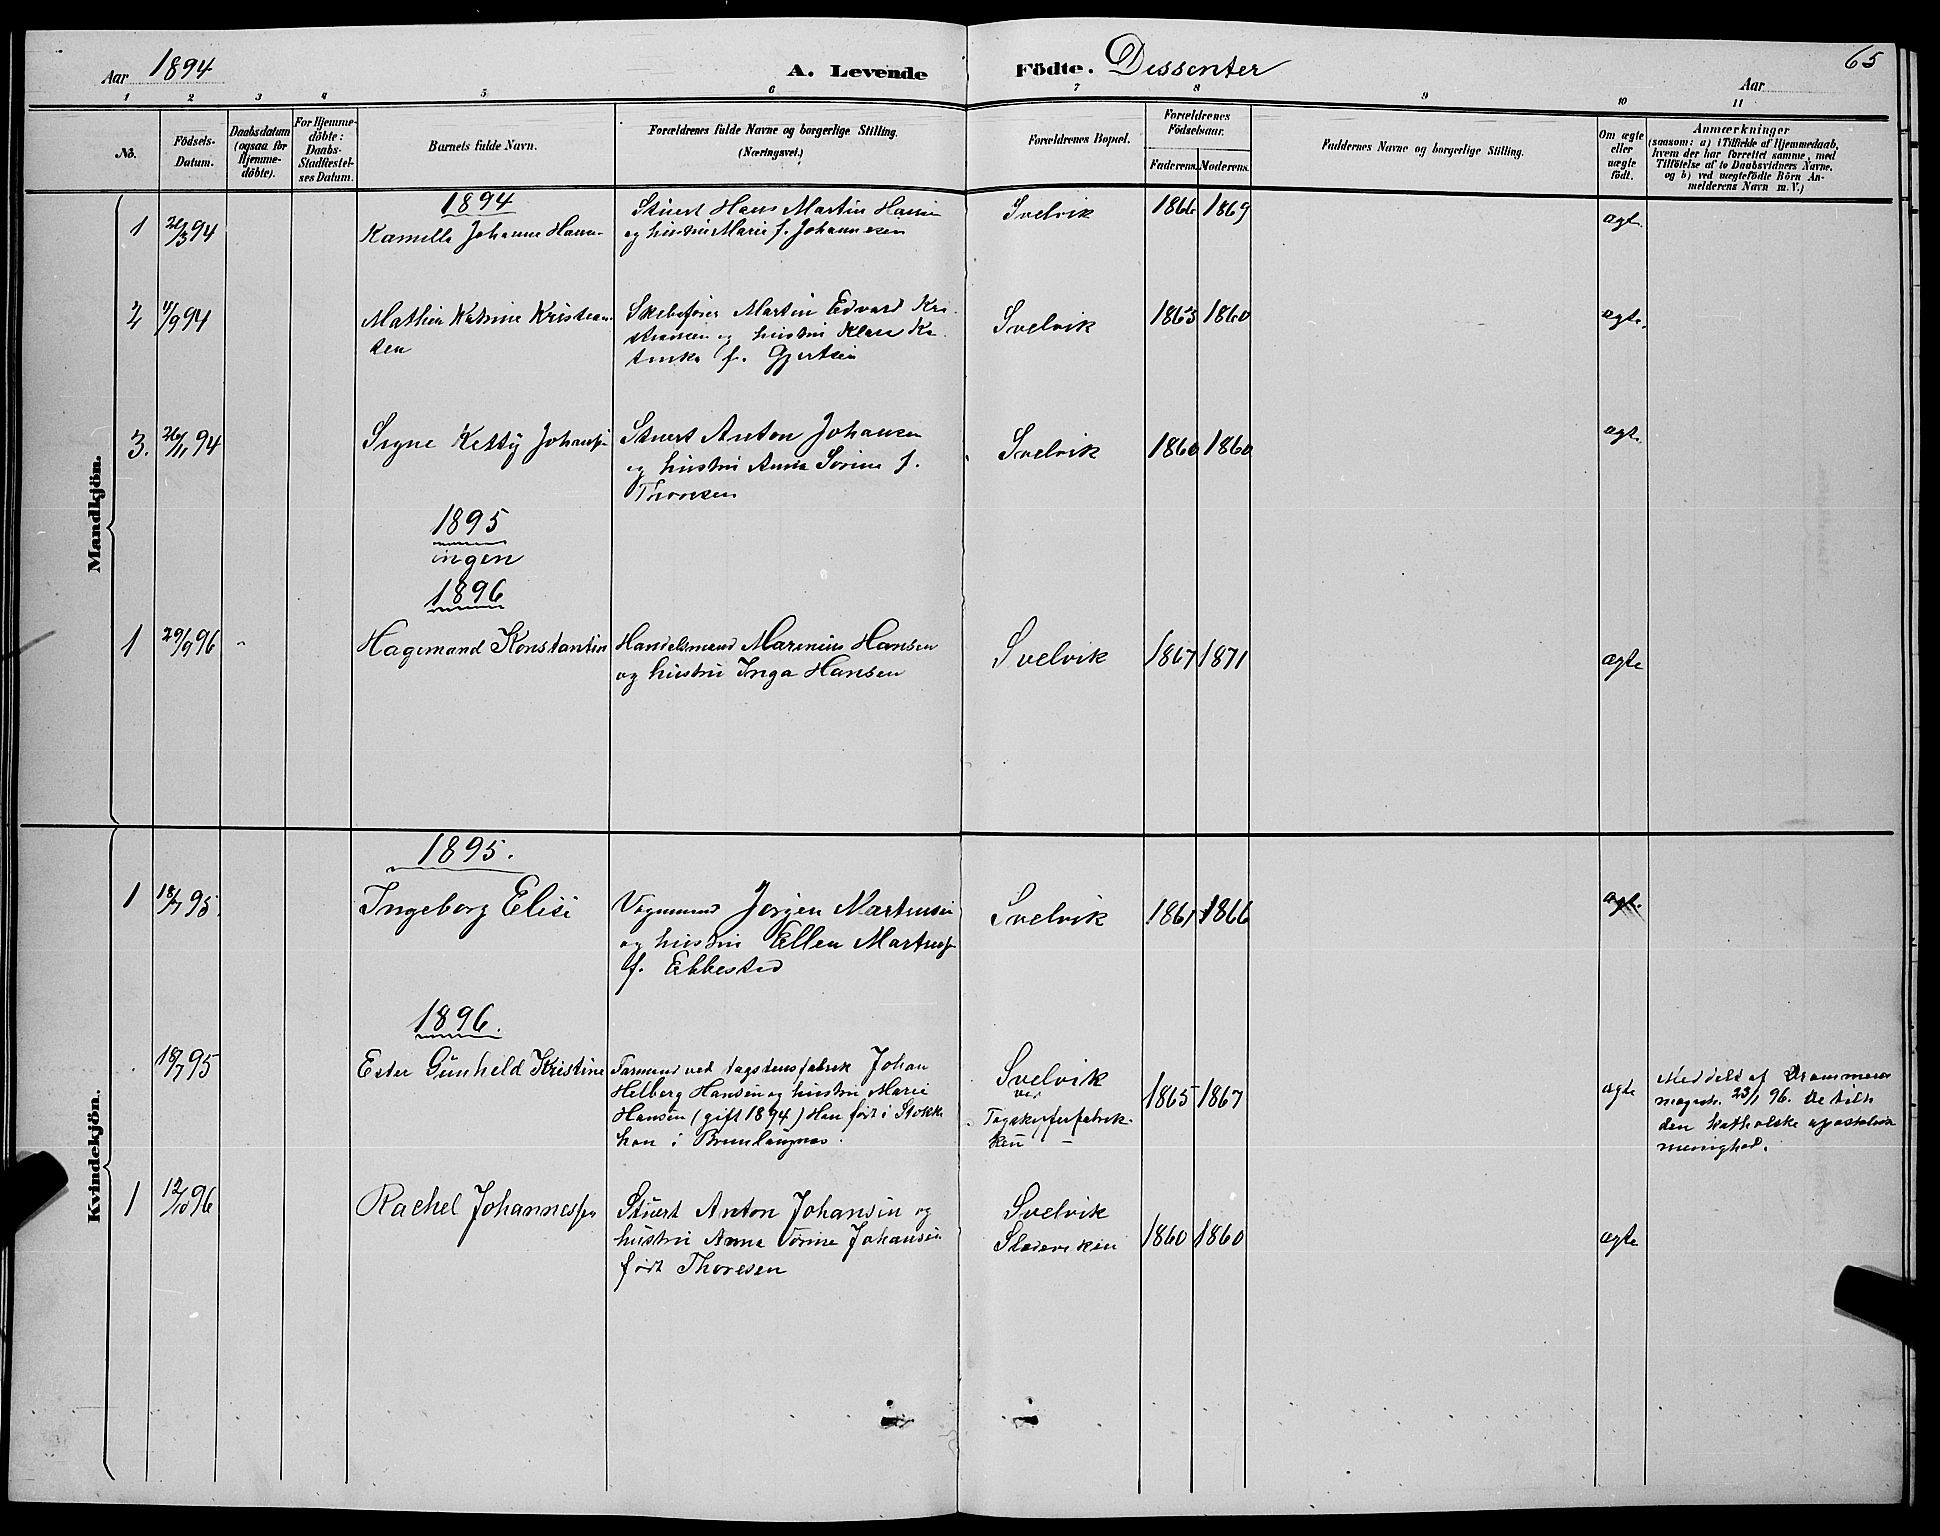 Aar 1894
A. Levende Födte. Dissenter
Aar
65
1 2 3 4 5 6 7 8 9 10 11
No.
Födsels-
Datum.
Daabsdatum
(ogsaa for
Hjemme-
döbte).
For Hjemme-
döbte:
Daabs-
Stadfæstel-
ses Datum.
Barnets fulde Navn.
Forældrenes fulde Navne og borgerlige Stilling.
(Næringsvei.)
Forældrenes Bopæl.
Forældrenes
Födselsaar.
Faderens. Moderens.
Faddernes Navne og borgerlige Stilling.
Om ægte
eller
uægte
födt.
Anmærkninger
(saasom: a) i Tilfælde af Hjemmedaab,
hvem der har forrettet samme, med
Tilföielse af to Daabsvidners Navne,
og b) ved uægtefödte Börn An-
melderens Navn m. V.)
Mandkjön.
1894
1 26/3 94 Kamilla Johanne Hansen
Stuert Hans Martin Hansen
og hustru Marie f. Johannesen
Svelvik 1866 1869 ægte.
2 11/9 94 Mathea Katrine Kristian-
sen
Skibsfører Martin Edvard Kri-
stiansen og hustru Klara Ka-
tinka f. Gjertsen
Svelvik 1863 1860 ægte.
3. 26/11 94 Signe Ketty Johansen
Stuert Anton Johansen
og hustru Anna Sorine f.
Thoresen
Svelvik 1860 1860 ægte.
1895
ingen
1896
1 29/9 96 Hagemand Konstantin
Handelsmand Marenius Hansen
og hustru Inga Hansen
Svelvik 1867 1871 ægte
Kvindekjön.
1895.
1 18/7 95. Ingeborg Elise
Vognmand Jørgen Martinsen
og hustru Ellen Martinsen
f. Ebbestad
Svelvik 1861 1866 ægte.
1896.
18/7 95 Ester Gunhild Kristine
Formand ved tagstensfabrik Johan
Helberg Hansen og hustru Marie
Hansen (gift 1894) Han født i Stokke
hun i Brunlaugnæs.
Svelvik
ved
Tagskiferfabrik-
ken
1865 1867 ægte
Meddelt af Drammens
magistr. 23/1 96. De tilh
den katholske apostoliske
menighed.
1 12/10 96 Rachel Johannessen
Stuert Anton Johansen og
hustru Anna Sorine Johansen
født Thoresen
Svelvik
1860 1860 ægte